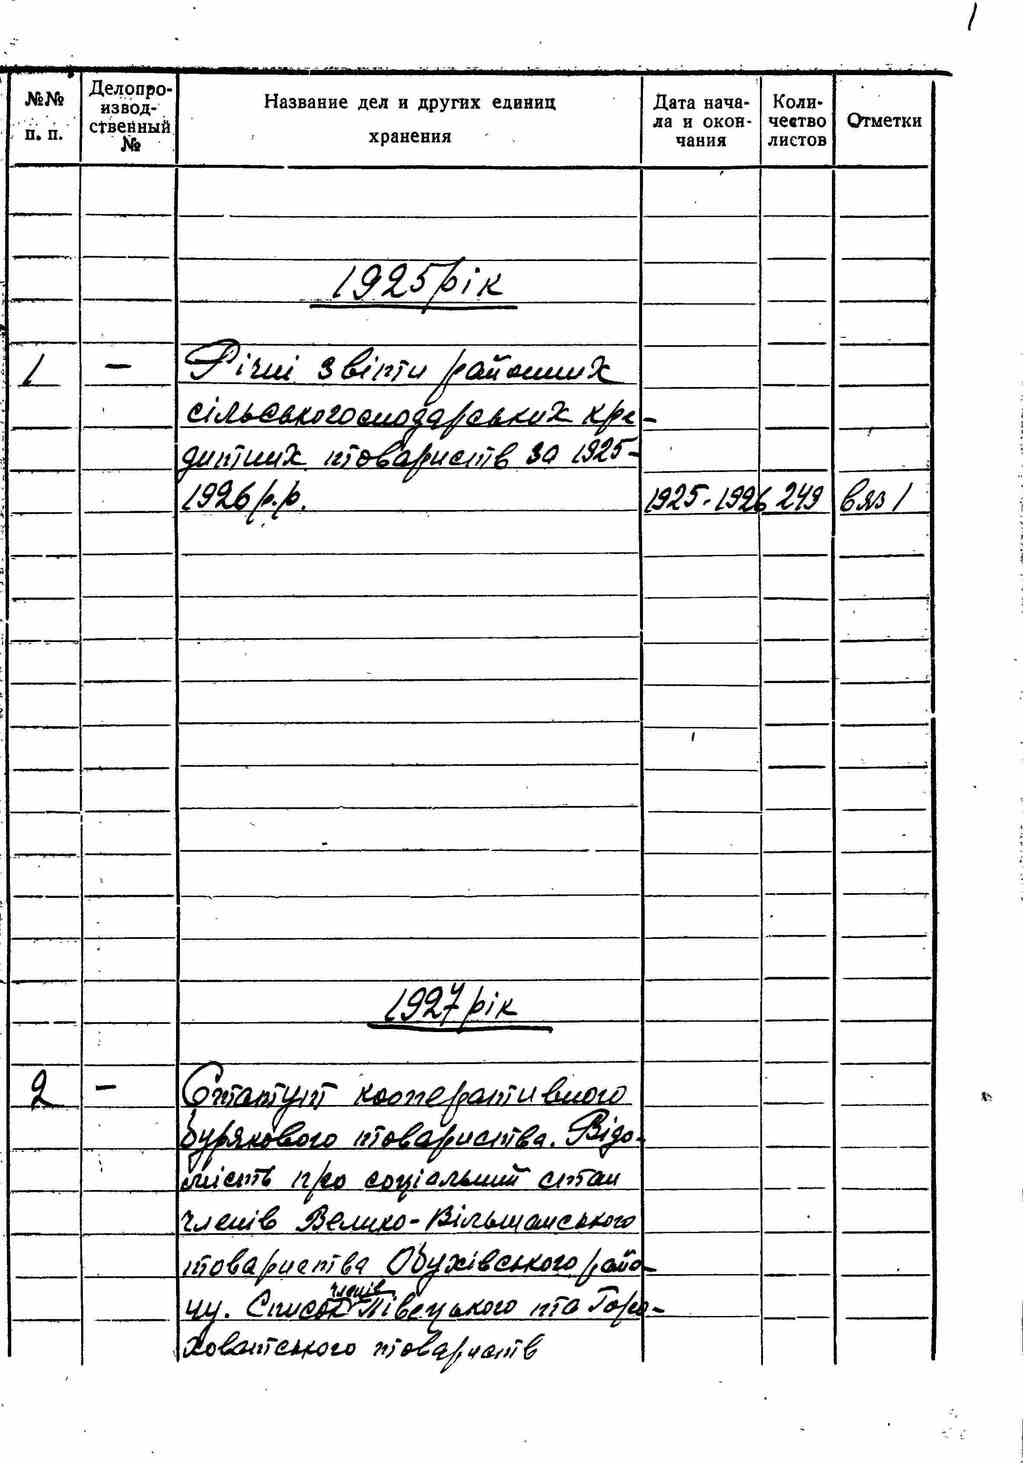 1
№№ п. п.
Делопро-
извод-
ственный
№
Название дел и других единиц
хранения
Дата нача-
ла и окон-
чания
Коли-
чество
листов
Отметки
1925 рік
1 — Річні звіти районних
сільськогосподарських кре-
дитних товариств за 1925-
1926 р.р. 1925-1926 249 вяз 1
1927 рік
2 — Статут кооперативного
бурякового товариства. Відо-
мість про соціальний стан
членів Велико-Вільшанського
товариства Обухівського райо-
ну. Список членів та Горо-
ховатського товариств